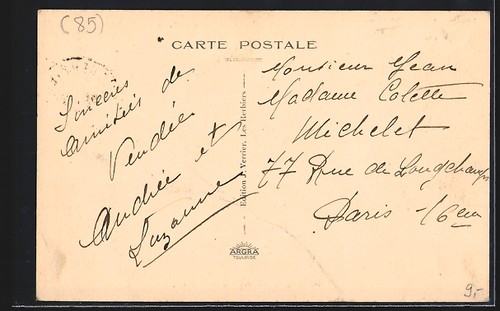 (85)
CARTE POSTALE
Sincères
Amitiés de
Vendée
Andrée et
Suzanne
Edition J. Verrier, Les Herbiers
Monsieur Jean
Madame Colette
Michelet
77 Rue de Longchamps
Paris - 16em
ARGRA
TOULOUSE
9,-